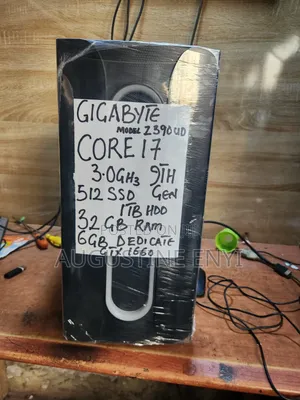 GIGABYTE
MODEL Z390UD
CORE i7
3.0GH3 9TH
512 SSD GEN
1TB HDD
32 GB RAM
6GB DEDICATE
GTX 1660
AUGUSTINE ENYI